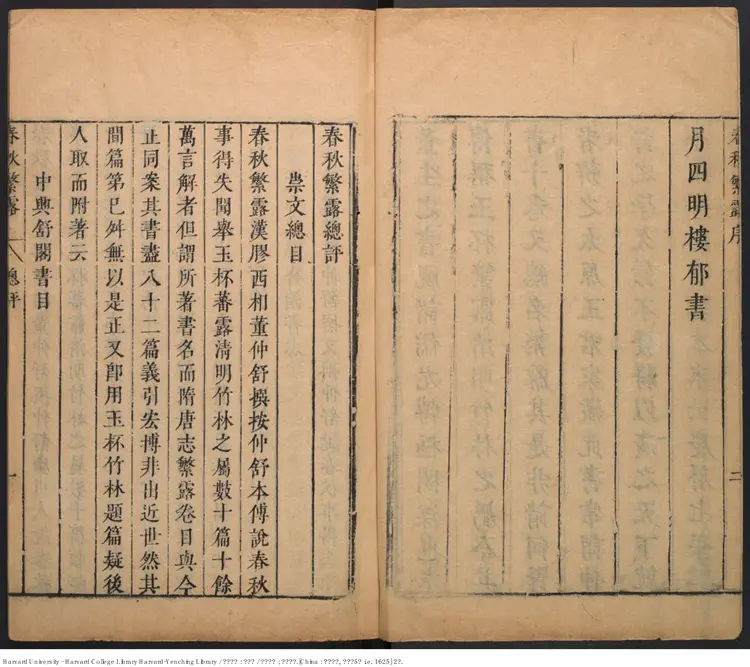 春秋繁露序
月四明樓郁書
二
春秋繁露總評
崇文總目
春秋繁露漢膠西相董仲舒撰按仲舒本傳說春秋
事得失聞舉玉杯蕃露清明竹林之屬數十篇十餘
萬言解者但謂所著書名而隋唐志繁露卷目與今
止同案其書盡八十二篇義引宏博非出近世然其
間篇第已舛無以是正又卽用玉杯竹林題篇疑後
人取而附著云
中興館閣書目
春秋繁露
總評
一
Harvard University - Harvard College Library Harvard-Yenching Library / ???? : ??? / ???? ; ????. [China : ????, ???5? ie. 1625] 2?.